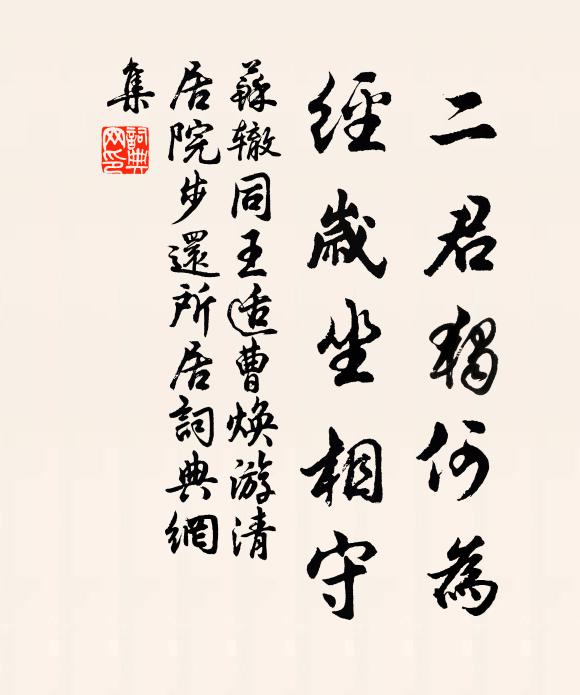 二君獨何為
經歲坐相守
蘇轍同王适曹煥游清
居院步還所居詞典網
集
詞典网印